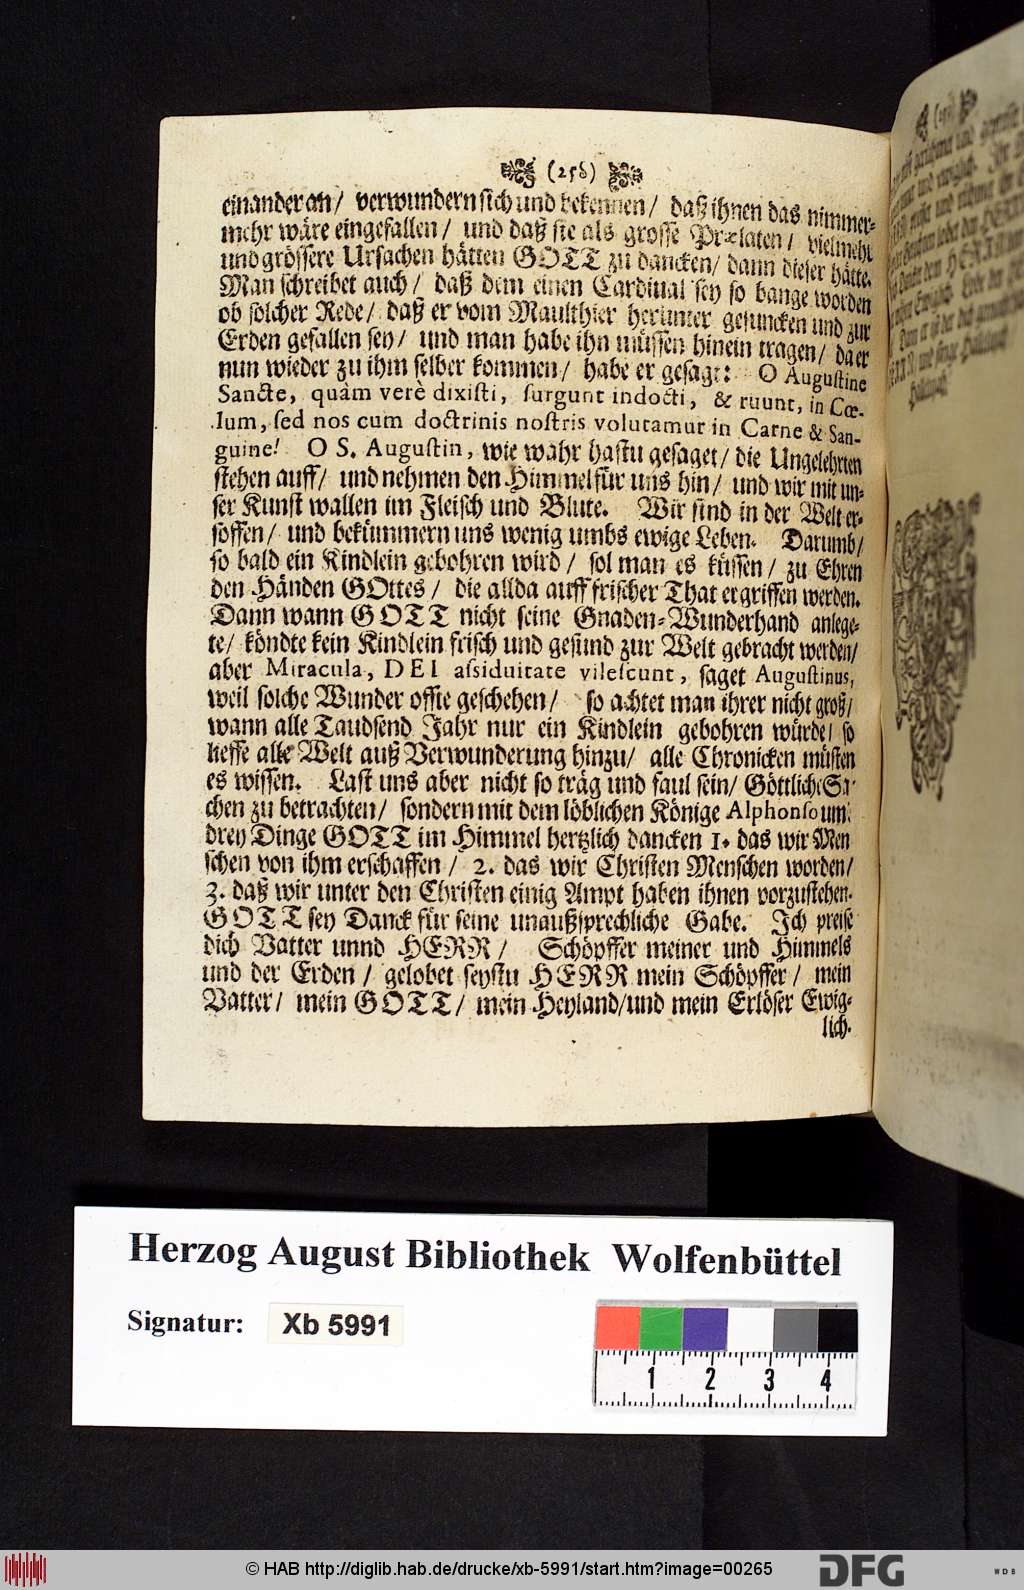 (256)
einander an/ verwundern sich und bekennen/ daß ihnen das nimmer-
mehr wäre eingefallen/ und daß sie als grosse Prælaten/ vielmehr
und grössere Ursachen hätten GOTT zu dancken/ dann dieser hätte.
Man schreibet auch/ daß dem einen Cardinal sey so bange worden
ob solcher Rede/ daß er vom Maulthier herunter gesuncken und zur
Erden gefallen sey/ und man habe ihn müssen hinein tragen/ da er
nun wieder zu ihm selber kommen/ habe er gesagt: O Augustine
Sancte, quàm verè dixisti, surgunt indocti, & ruunt, in Cœ-
lum, sed nos cum doctrinis nostris volutamur in Carne & San-
guine! O S. Augustin, wie wahr hastu gesaget/ die Ungelehrten
stehen auff/ und nehmen den Himmel für uns hin/ und wir mit un-
ser Kunst wallen im Fleisch und Blute. Wir sind in der Welt er-
soffen/ und bekümmern uns wenig umbs ewige Leben. Darumb/
so bald ein Kindlein gebohren wird/ sol man es küssen/ zu Ehren
den Händen GOttes/ die allda auff frischer That ergriffen werden.
Dann wann GOTT nicht seine Gnaden-Wunderhand anlege-
te/ köndte kein Kindlein frisch und gesund zur Welt gebracht werden/
aber Miracula, DEI assiduitate vilescunt, saget Augustinus,
weil solche Wunder offte geschehen/ so achtet man ihrer nicht groß/
wann alle Taudsend Jahr nur ein Kindlein gebohren würde/ so
lieffe alle Welt auß Verwunderung hinzu/ alle Chronicken müsten
es wissen. Last uns aber nicht so träg und faul sein/ Göttliche Sa-
chen zu betrachten/ sondern mit dem löblichen Könige Alphonso um
drey Dinge GOTT im Himmel hertzlich dancken 1. das wir Men
schen von ihm erschaffen/ 2. das wir Christen Menschen worden/
3. daß wir unter den Christen einig Ampt haben ihnen vorzustehen.
GOTT sey Danck für seine unaußsprechliche Gabe. Ich preise
dich Vatter unnd HERR/ Schöpffer meiner und Himmels
und der Erden/ gelobet seystu HERR mein Schöpffer/ mein
Vatter/ mein GOTT/ mein Heyland/ und mein Erlöser Ewig-
lich.
Herzog August Bibliothek Wolfenbüttel
Signatur: Xb 5991
1 2 3 4
© HAB http://diglib.hab.de/drucke/xb-5991/start.htm?image=00265
DFG
WDB